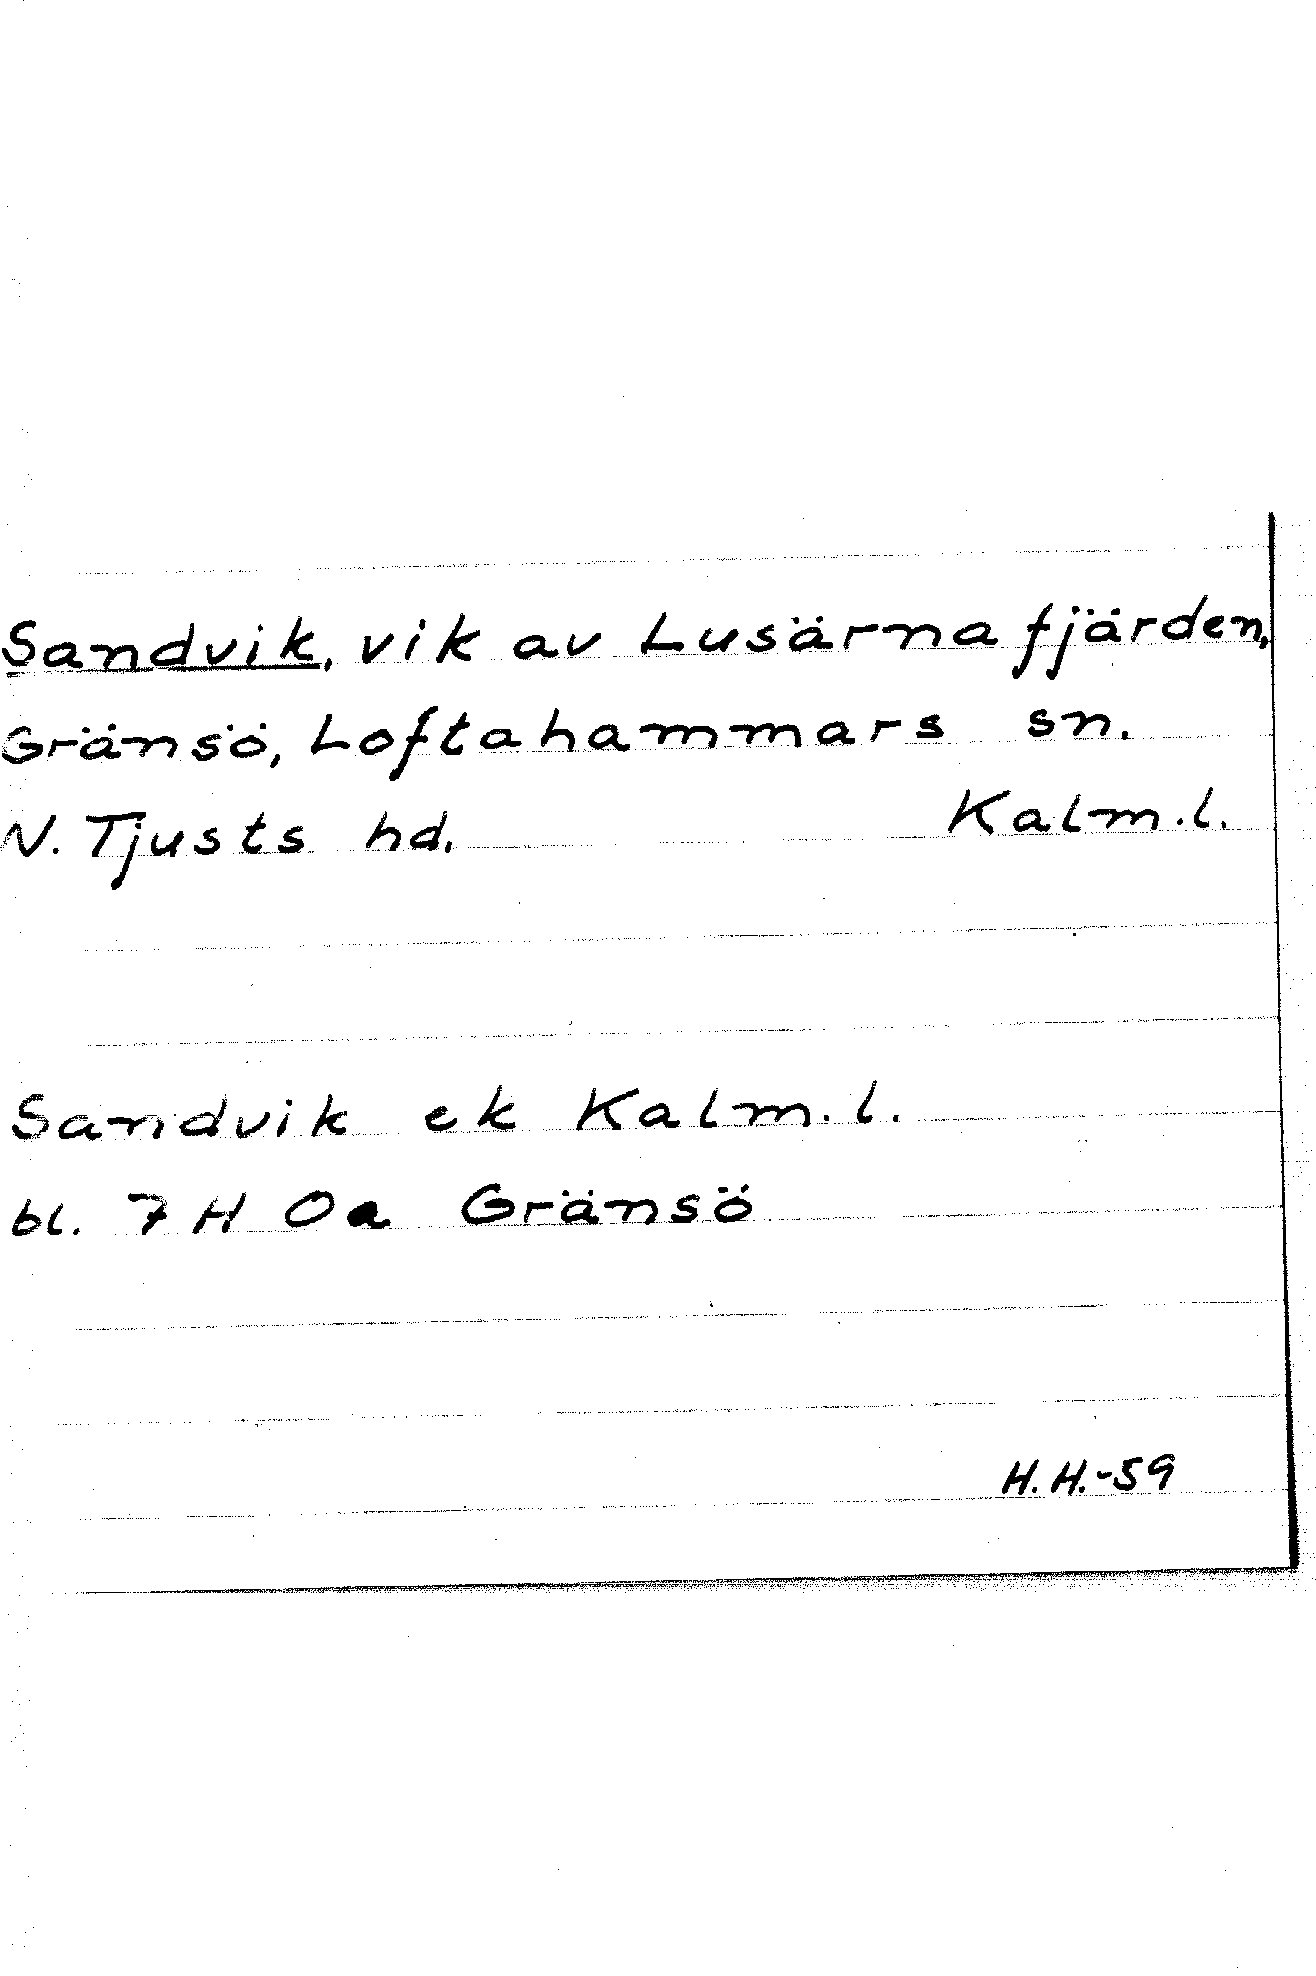 Sandvik, vik av Lusärnafjärden,
Gränsö, Loftahammars sn.
N. Tjusts hd. Kalm.l.
Sandvik ek Kalm.l.
bl. 7 H 0a Gränsö
H.H.-59